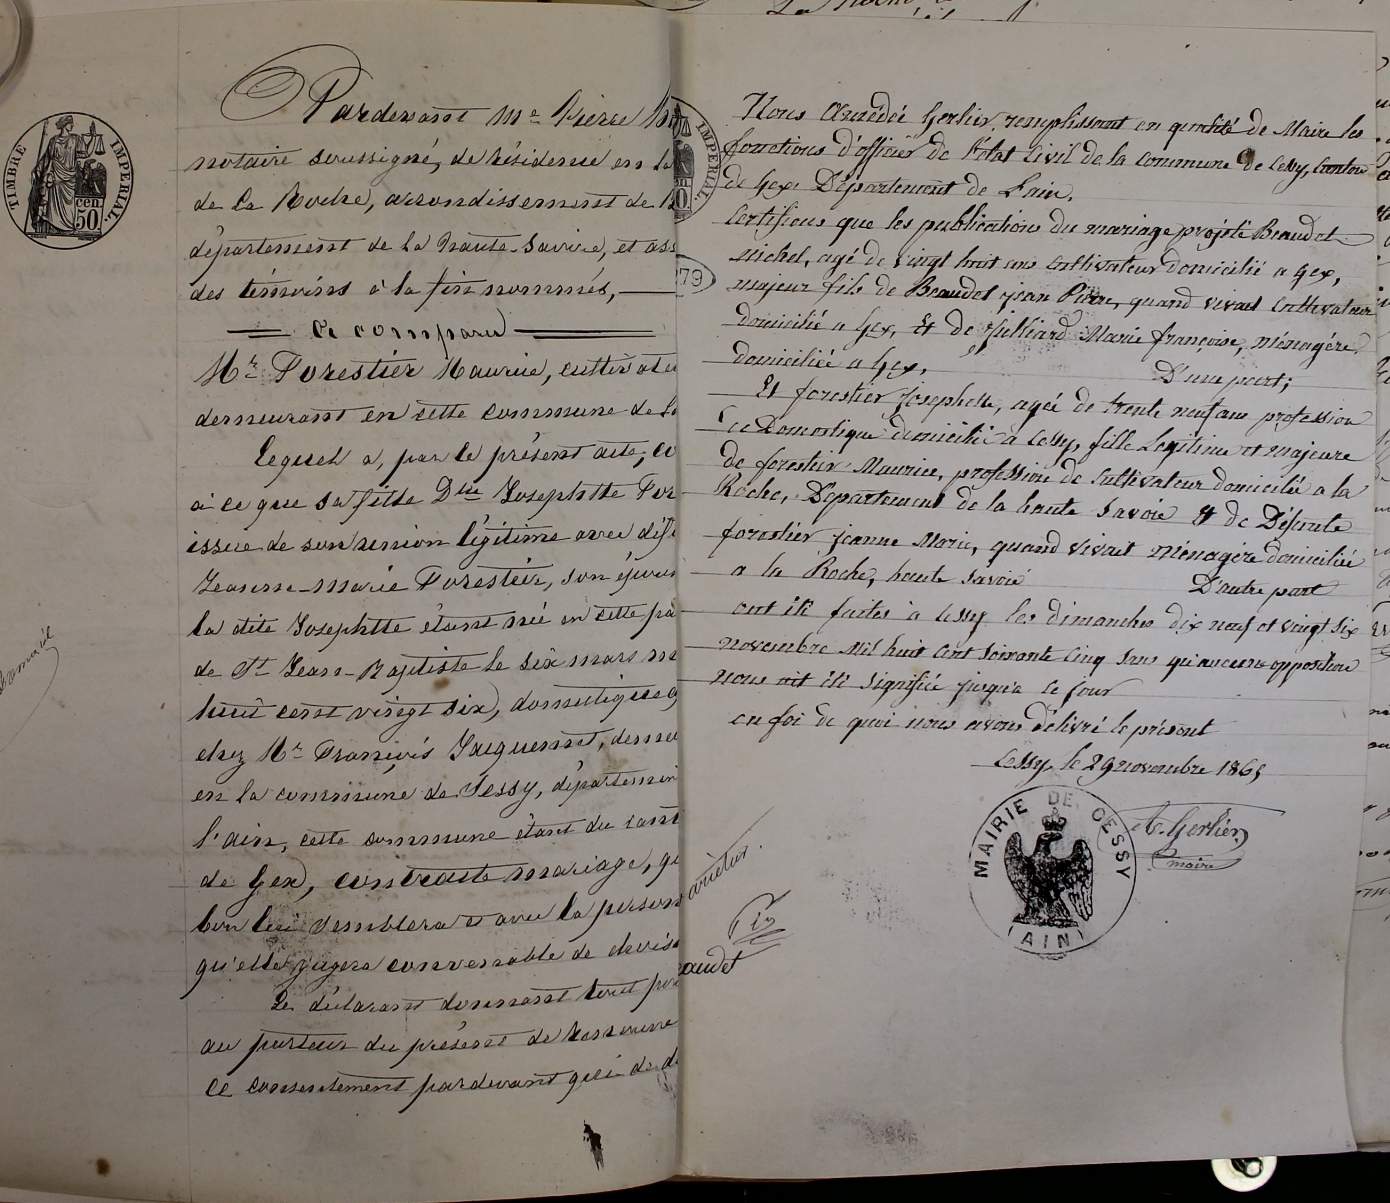 TIMBRE IMPERIAL
50 cen
Pardevant Me Pierre
notaire soussigné, de résidence en la
de La Roche, arrondissement de
département de la haute-Savoie, et ass
des témoins à la fin nommés,
a comparu
Mr Forestier Maurice, cultivateu
demeurant en cette commune de
Lequel a, par le présent acte, co
à ce que sa fille Dlle Josephtte For
issue de son union légitime avec déf
Jeanne-Marie Forestier, son épou
la dite Josephtte étant née en cette pa
de St Jean-Baptiste le six mars m
huit cent vingt six, domestique
chez Mr François Jacquemet, demeu
en la commune de Sessy, départemen
l'ain, cette commune étant du cant
de Gex, contracte mariage, qu
bon lui semblera et avec la person
qu'elle jugera convenable de choisi
Le déclarant donnant tout pou
au porteur du présent de
ce consentement pardevant qui de d
IMPERIAL.
79
Nous Amédée Gerlier, remplissant en qualité de Maire les
fonctions d'officier de l'état Civil de la commune de Cessy, Canton
de Gex, Département de l'ain,
Certifions que les publications du mariage projeté Beaudet
Michel, agé de vingt huit ans Cultivateur domicilié a Gex,
majeur fils de Beaudet jean Pierre, quand vivait Cultivateur
domicilié a Gex, Et de Julliard Marie françoise, ménagère
domiciliée a Gex, D'une part;
Et forestier Josephtte, agée de trente neuf ans profession
de Domestique domicilié à Cessy, fille Legitime et majeure
de forestier Maurice, profession de Cultivateur domicilié a la
Roche, Département de la haute Savoie Et de Défunte
forestier jeanne Marie, quand vivait Ménagère domiciliée
a la Roche, haute Savoie D'autre part
ont été faites à Cessy les dimanches dix neuf et vingt six
novembre Mil huit Cent Soixante Cinq Sans qu'aucune opposition
nous ait été Signifiée jusqu'a ce jour
en foi de quoi nous avons délivré le présent
Cessy, le 29 novembre 1865
A. Gerlier
maire
MAIRIE DE CESSY
(AIN)
varietur.
audet